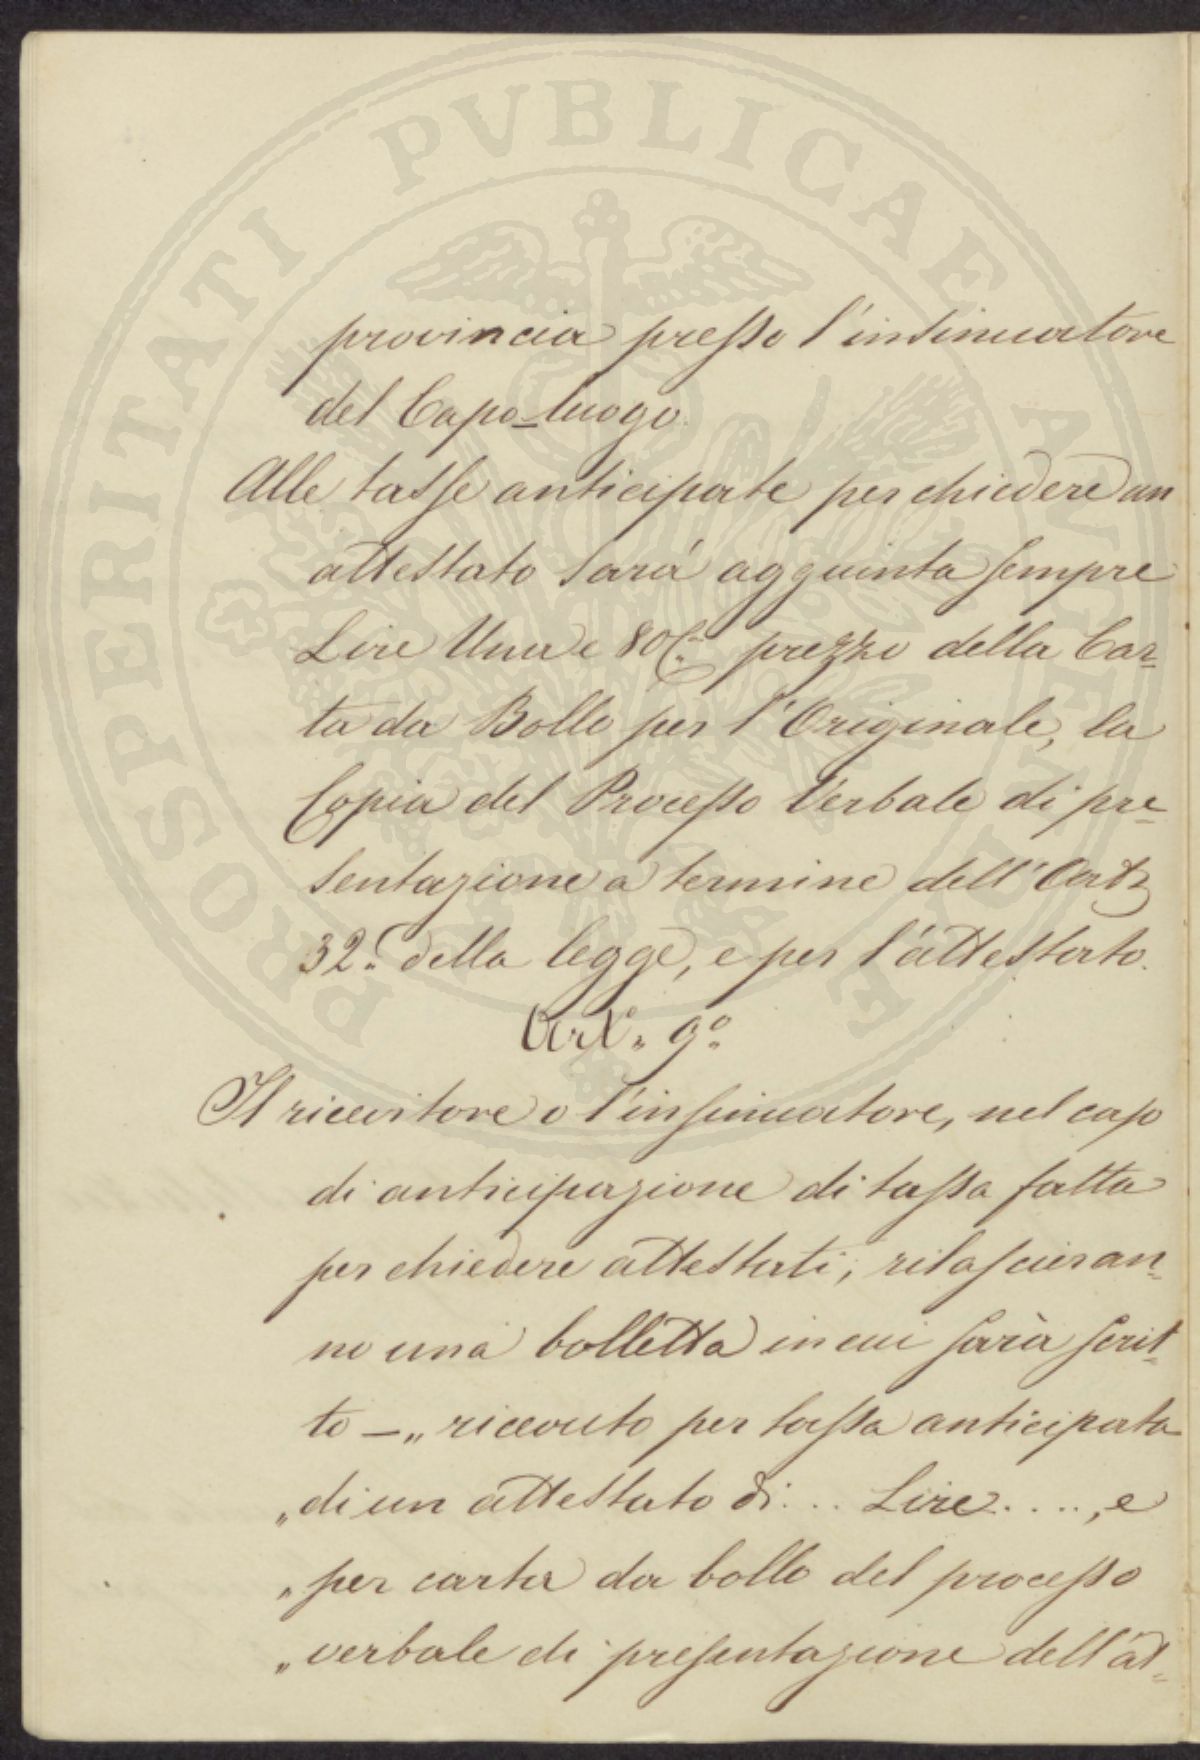 PROSPERITATI PVBLICAE AVGENDAE
provincia presso l'insinuatore
del Capo-luogo.
Alle tasse anticipate per chiedere un
attestato sarà aggiunta sempre
Lire Una e 80 C.mi prezzo della Car=
ta da Bollo per l'Originale, la
Copia del Processo Verbale di pre=
sentazione a termine dell'Art.
32. della legge, e per l'attestato.
Art. 9.°
Il ricevitore o l'insinuatore, nel caso
di anticipazione di tassa fatta
per chiedere attestati, rilascieran=
no una bolletta in cui sarà scrit=
to — „ ricevuto per tassa anticipata
„ di un attestato di ... Lire ...., e
„ per carta da bollo del processo
„ verbale di presentazione dell'at=